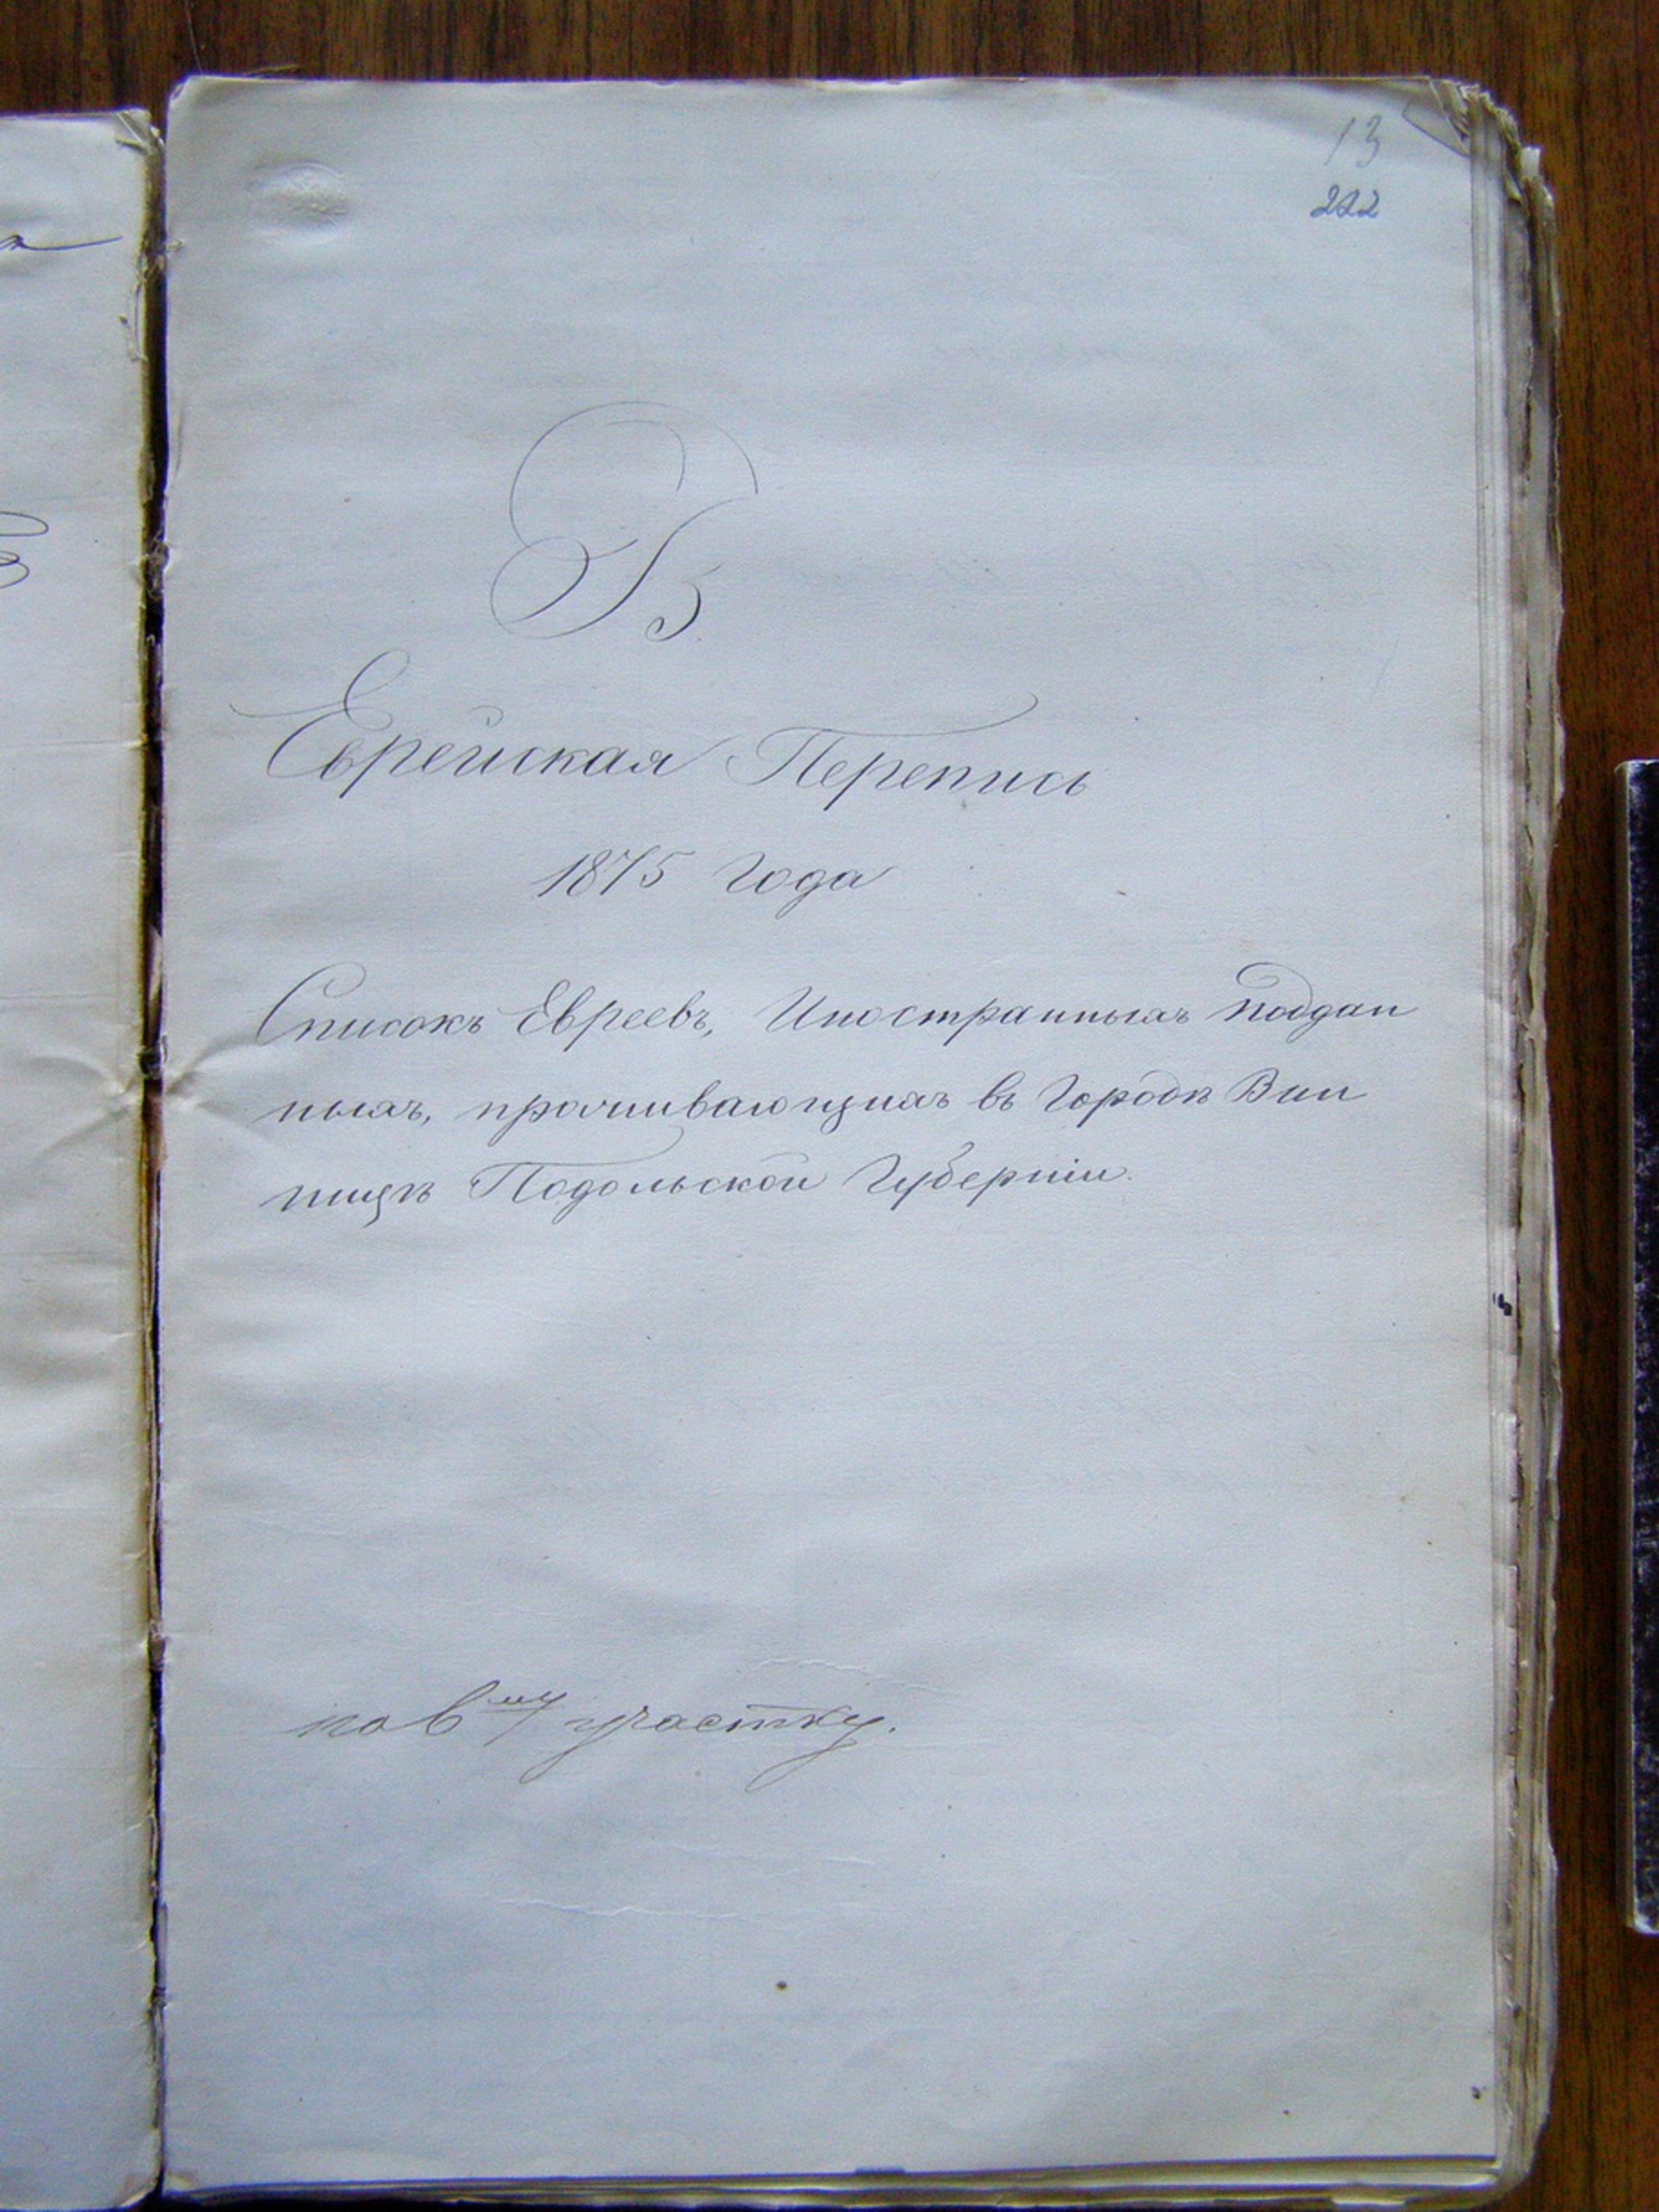 13
222
В
Еврейская Перепись
1875 года
Списокъ Евреевъ, Иностранныхъ поддан
ныхъ, проживающихъ въ Городѣ Вин
ницѣ Подольской Губерніи.
по 6му участку.